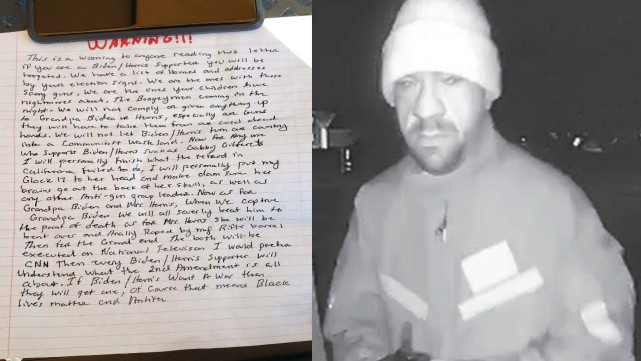 WARNING!!!
This is a warning to anyone reading this letter
if you are a Biden/Harris supporter you will be
targeted. We have a list of Homes and addresses
by your election signs. We are the ones with those
scary guns, We are the ones your children have
nightmares about, The Boogeymen coming in the
night. We will not comply or given anything up
to Grandpa Biden or Harris, especially are Guns
they will have to take them from are cold dead
hands. We will not let Biden/Harris turn are country
into a Communist Wasteland. Now for Any one
who supports Biden/Harris named Gabby Gifferets
I will personally finish what the retard in
California failed to do, I will personally put my
Glock 17 to her head and make damn sure her
brains go out the back of her skull, as well as
any other Anti-gun group leader. Now as for
Grandpa Biden and Mrs. Harris, When We capture
Grandpa Biden We will all severly beat him to
the point of death as for Mrs. Harris she will be
bent over and Anally Raped by my Rifle barrel
Then for the Grand end The both will be
executed on National Television I would prefer
CNN Then every Biden/Harris Supporter will
Understand what the 2nd Amendment is all
about. If Biden/Harris Want A war then
they will get one, of Course that means Black
lives matter and Antifa